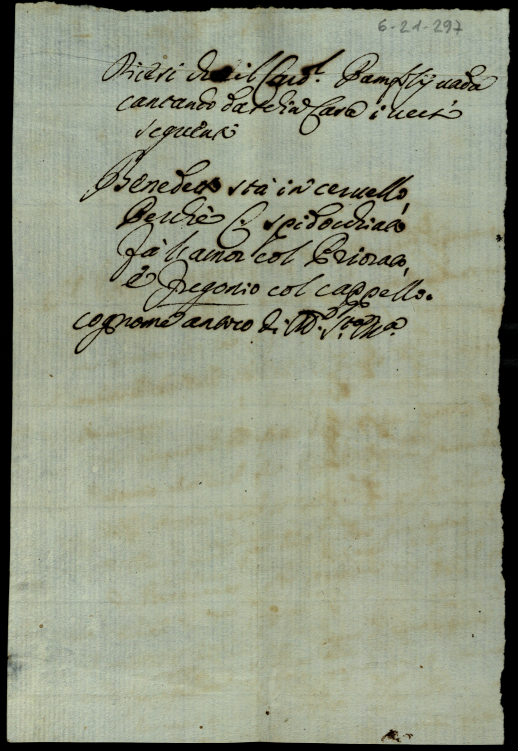 6-21-297
Dicesi che il Card.l Pamfilij vada
cantando da se in Casa i versi
seguenti
Benedetto stà in cervello,
Perche lo spidocchiato
Fà l'amor col Priorato,
e Gregorio col cappello.
cognome antico di